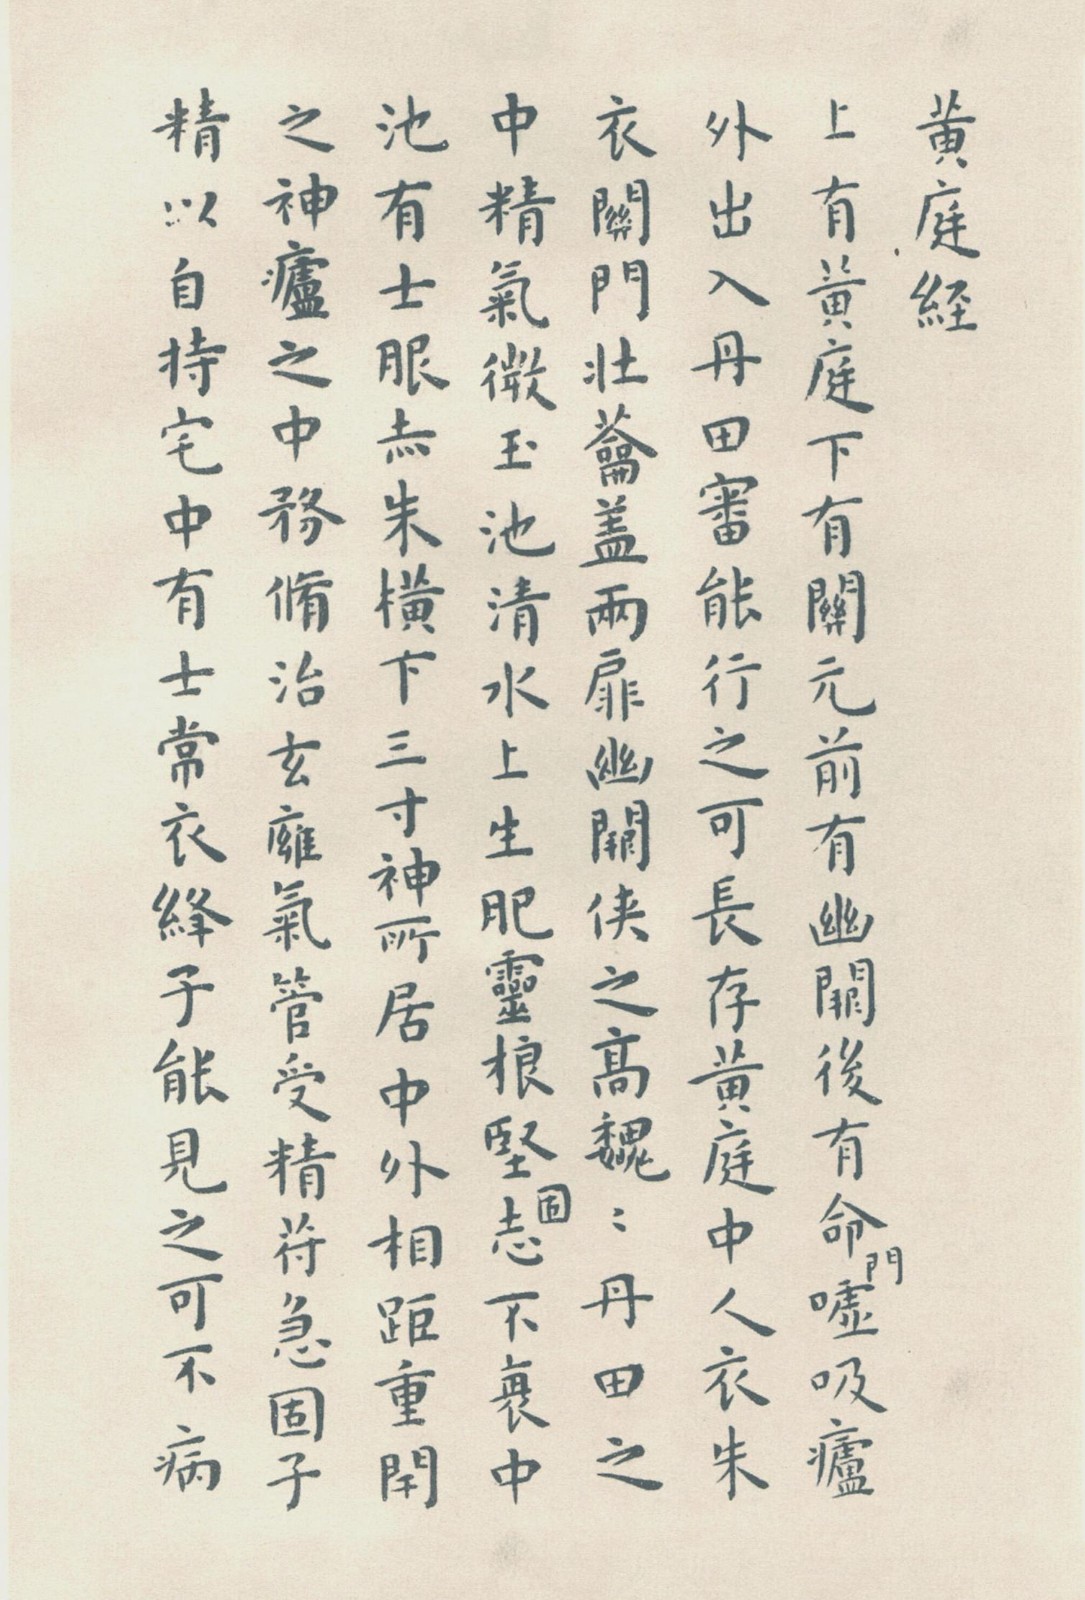 黄庭経
上有黄庭下有關元前有幽闕後有命門噓吸廬
外出入丹田審能行之可長存黄庭中人衣朱
衣關門壯蘥盖兩扉幽闕侠之高魏〻丹田之
中精氣微玉池清水上生肥靈根堅志固不衰中
池有士服赤朱横下三寸神所居中外相距重閇
之神廬之中務脩治玄㢕氣管受精苻急固子
精以自持宅中有士常衣絳子能見之可不病